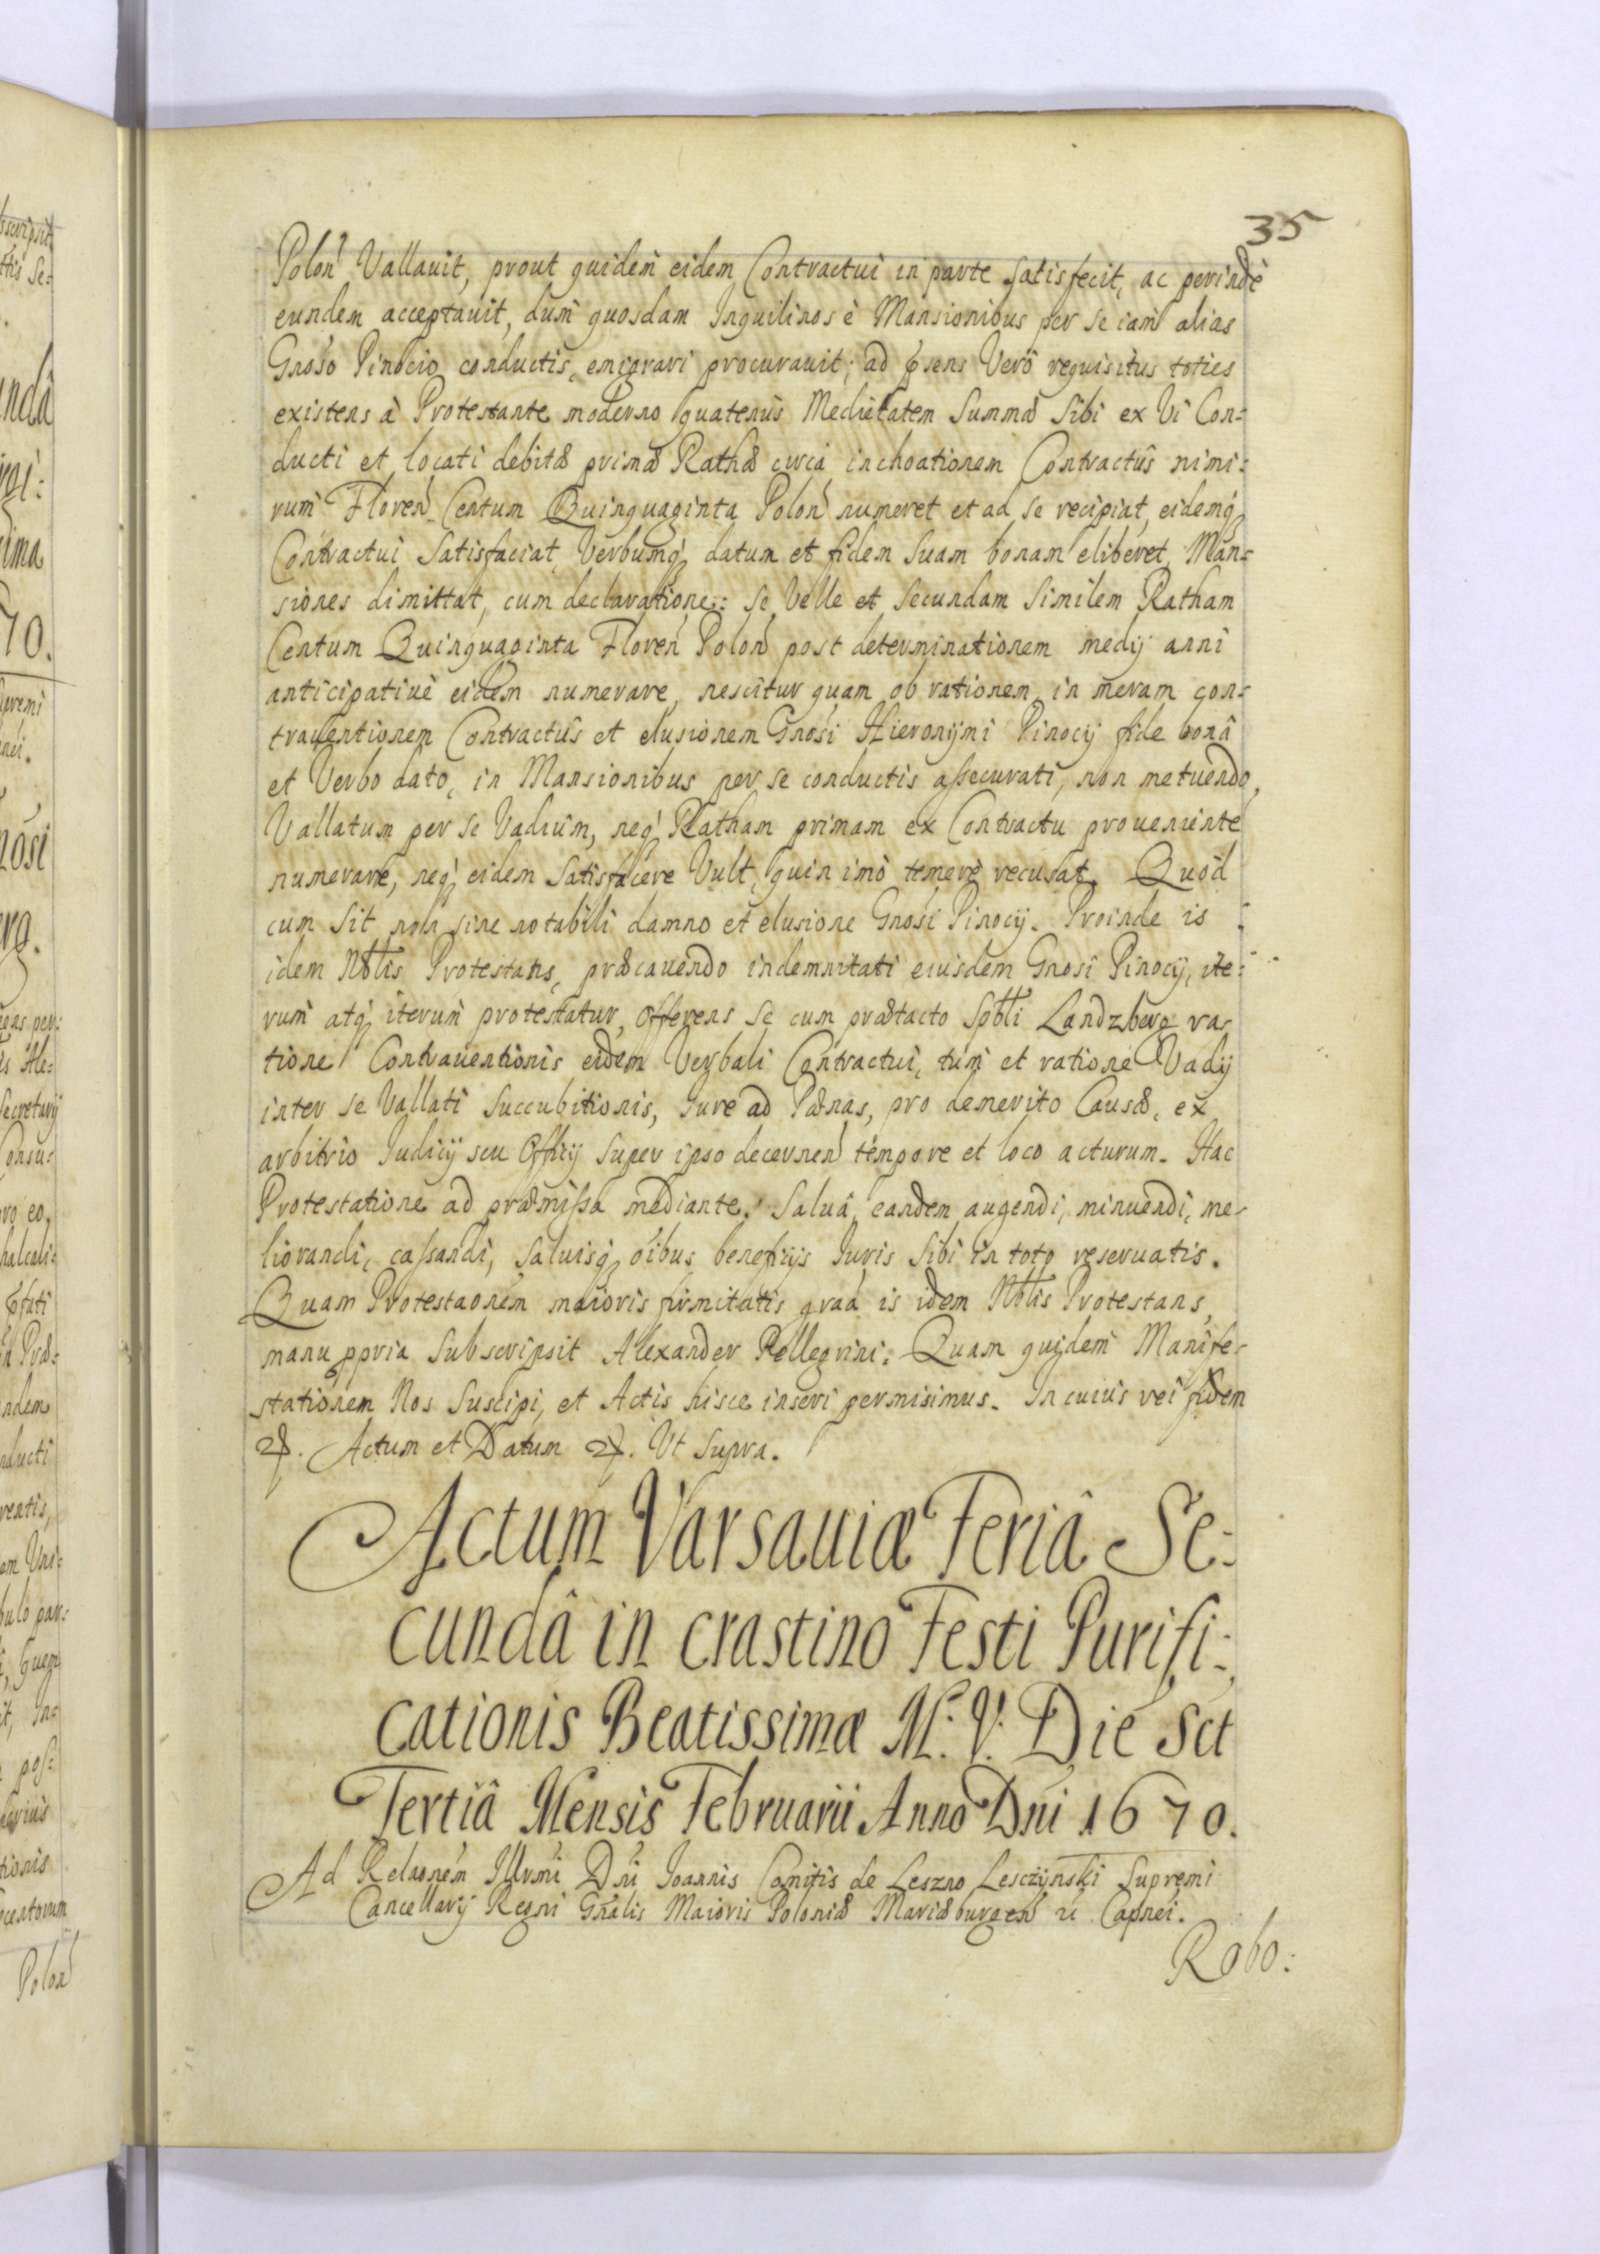 35
Polon̄ Vallauit, prout quidem̀ eidem Contractui in parte satisfecit, ac perindè
eundem acceptauit, dum̀ quosdam Inquilinos è Mansionibus per se iam̀ alias
Gnoso Pinocio conductis, emigrari procurauit; ad p̄sens Verò requisitus toties
existens à Protestante moderno quatenùs Medietatem Summæ Sibi ex Vi Con-
ducti et locati debitæ primæ Rathæ circa inchoationem Contractûs nimi:
rum̀ Floren̄ Centum Quinquaginta Polon̄ numeret et ad se recipiat, eidemq́
Contractui Satisfaciat, Verbumq́ datum et fidem Suam bonam eliberet, Man-
siones dimittat, cum declaratione: se Velle et Secundam Similem Ratham
Centum Quinquaginta Floren̄ Polon̄ post determinationem medij anni
anticipatiuè eidem numerare, nescitur quam ob rationem, in meram con-
trauentionem Contractûs et elusionem Gnosi Hieronymi Pinocij fide bonâ
et Verbo dato, in Mansionibus per se conductis assecurati, non metuendo,
Vallatum per se Vadium, neq́ Ratham primam ex Contractu prouenientē
numerare, neq́ eidem Satisfacere Vult, quin imò temerè recusat. Quòd
cum Sit non sine notabili damno et elusione Gnosi Pinocij. Proinde is
idem Nōtlis Protestans, præcauendo indemnitati eiusdem Gnosi Pinocij, ite-
rum̀ atq́ iterum̀ protestatur, Offerens Se cum prætacto Spōtli Landzberg ra-
tione Contrauentionis eidem Verbali Contractui, tum̀ et ratione Vadij
inter se Vallati Succubitionis, Iure ad Pænas, pro demerito Causæ, ex
arbitrio Iudicij seu Officij Super ipso decernen̄ tempore et loco acturum. Hac
Protestatione ad præmissa mediante. Saluâ, eandem augendi, minuendi, me-
liorandi, cassandi, Saluisq́ oībus beneficijs Iuris Sibi in toto reseruatis.
Quam Protestaonēm maioris firmitatis graā is idem Nōtlis Protestans,
manu ppria Subscripsit Alexander Pellegrini. Quam quidem̀ Manife-
stationem Nos Suscipi, et Actis hisce inseri permisimus. In cuius rei fidem
&. Actum et Datum &. Ut Supra.
Actum Varsauiæ Feriâ Se-
cundâ in crastino Festi Purifi-
cationis Beatissimæ M. V. Die Sct
Tertiâ Mensis Februarii Anno Dni 1670.
Ad Relaonēm Illrmi Dni Ioannis Comitis de Leszno Lesczÿnski Supremi
Cancellarij Regni Gnālis Maioris Poloniæ Mariæburgen̄ &c Capnei.
Robo: